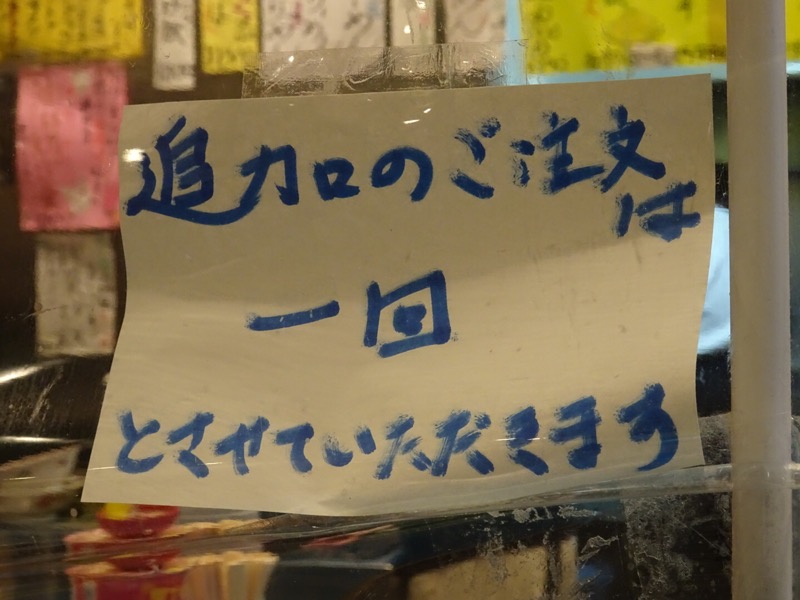 追加のご注文は
一回
とさせていただきます